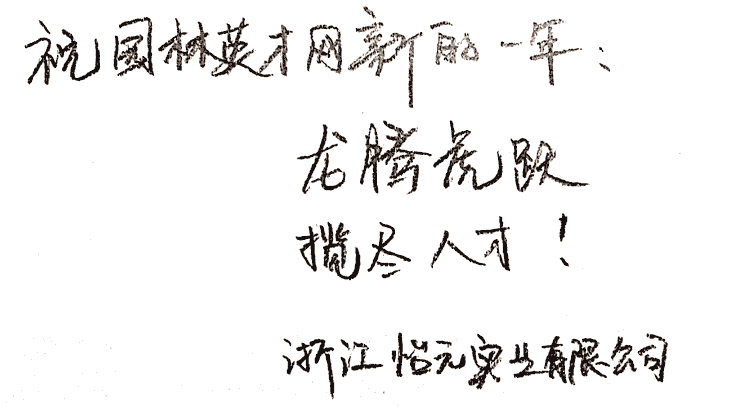 祝园林英才网新的一年：
龙腾虎跃
揽尽人才！
浙江怡元实业有限公司